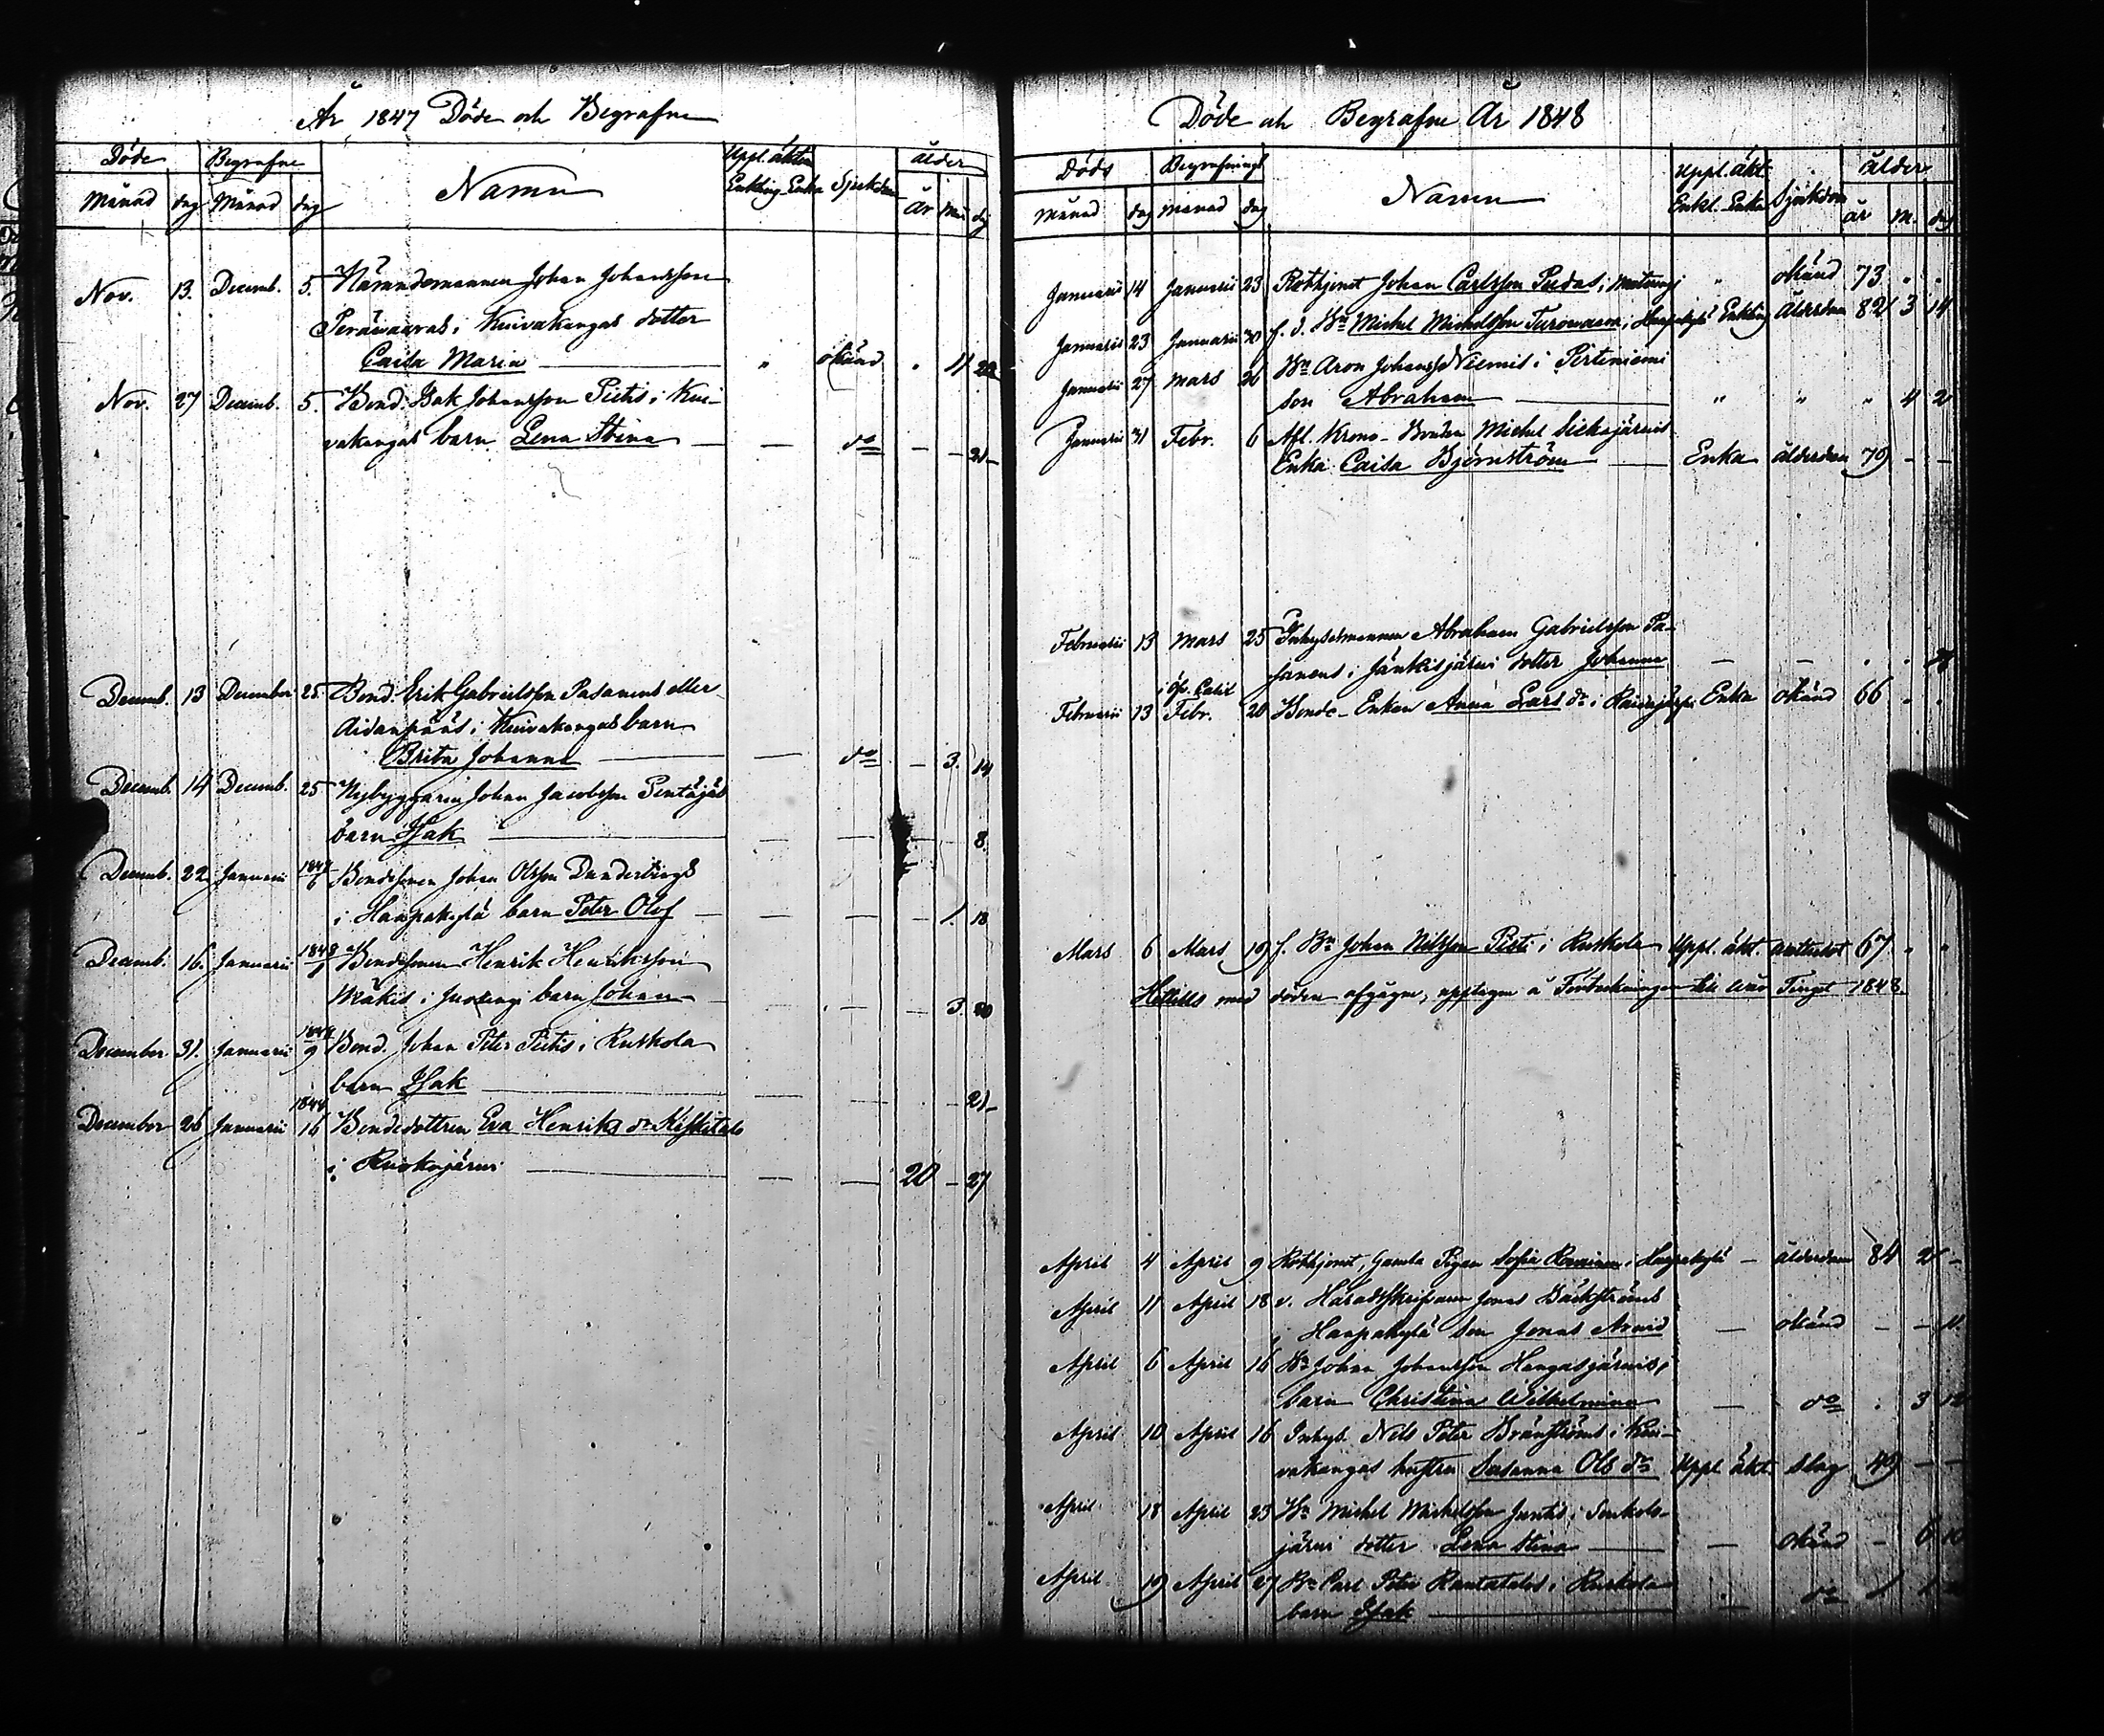 År 1847 Döde och Begrafne
Döde Begrafne Namn Uppl. äkten Enkling Enka Sjukdom ålder
Månad dag Månad dag år mån dg
Nov. 13. Decemb. 5. Nämndemannen Johan Johansson
Perävaaras i Kuivakangas dotter
Caisa Maria — " okänd . 11 22
Nov. 27 Decemb. 5. Bond. Isak Johansson Pietis i Kui-
vakangas barn Lena Stina — — do — — 21
Decemb. 13 December 25 Bond. Erik Gabrielsson Pasanens eller
Aidanpääs i Kuivakangas barn
Brita Johanna — — do — 3. 14
Decemb. 14 Decemb. 25 Nybyggaren Johan Jacobsson Pentäjäs
barn Isak — — — — 8.
Decemb. 22 Januarii 6 Bondesonen Johan Olsson Dunderbergs
i Haapakylä barn Peter Olof — — — — 1. 18
Decemb. 16. Januarii 1848 1 Bondesonen Henrik Henriksson
Mäkis i Juoxengi barn Johan — — — 3. 20
December 31. Januarii 1848 9 Bond. Johan Peter Pietis i Ruskola
barn Isak — — — — 21
December 26 Januarii 1848 16 Bondedottren Eva Henriks dr Kihlkitalo
i Ruokojärvi — — — 20 — 27
Döde och Begrafne År 1848
Döds Begrafnings Namn Uppl. äkt. Enkl. Enka Sjukdom ålder
månad dag månad dag år m. dag
Januarii 14 Januarii 23 Rothjonet Johan Carlsson Pudas i Matarengi " okänd 73 . .
Januarii 23 Januarii 30 f. d. Bn Michel Michelsson Turovaara i Haapakylä Enkling ålderdom 82 3 14
Januarii 27 Mars 26 Bn Aron Johanss. Niemis i Pirtiniemi
son Abraham — " " " 4 2
Januarii 31 Febr. 6 Afl. Krono-Bonden Michel Siekajärvis
Enka Caisa Björnström — Enka ålderdom 79 — —
Februarii 13 Mars 25 Inhysesmannen Abraham Gabrielsson Pa-
sanens i Jänkisjärvi dotter Johanna — — . .
Februarii 13 Febr. 20 Bonde-Enkan Anna Lars dr i Enka okänd 66 . .
Mars 6 Mars 19 f. Bn Johan Nilsson Pisti i Ruskola Uppl. äkt. 67 . "
Hittills med döden afgågne, upptagne å Förteckningen till Wår Tinget 1848.
April 4 April 9 Rothjonet, Gamla Pigan Sofia i Haapakylä — ålderdom 84 2 —
April 11 April 18 v. Häradsskrifvaren Jonas Bäckströms
i Haapakylä son Jonas Arvid — okänd — — 11.
April 6 April 16 Bn Johan Johansson Hangasjärvis
barn Christina Wilhelmina — do . 3 12
April 10 April 16 Inhys. Nils Peter Brännströms i Kui-
vakangas hustru Susanna Ols dr Uppl. äkt. Slag 49 — —
April 18 April 23 Bn Michel Michelsson Juntis i
järvi dotter Lena Stina — — okänd — 6 10
April 19 April 27 Bn Carl Peter Rantatalos i Ruskola
barn Isak — — do 1 1